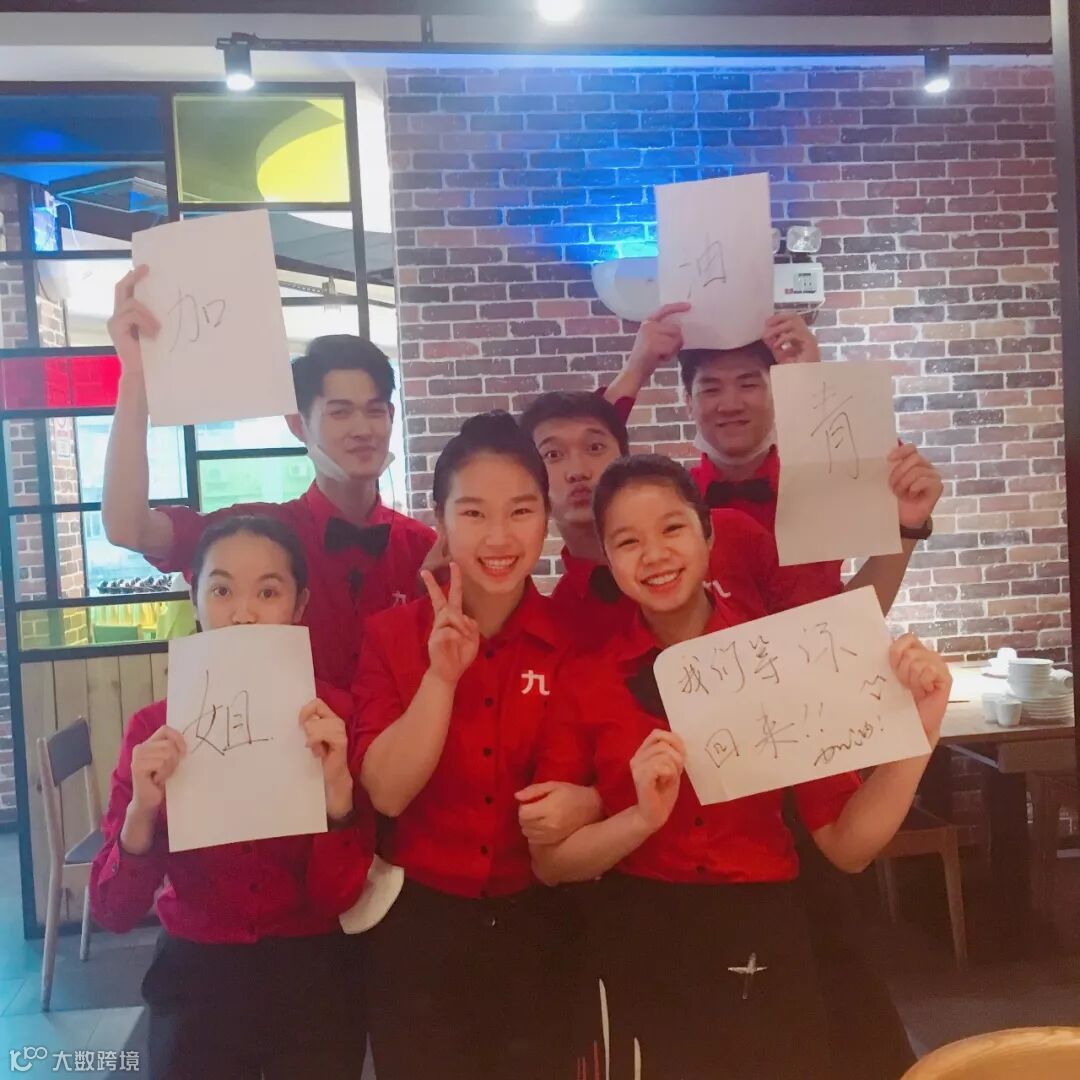 加
油
青
姐
我们等你
回来!!
九
九
大数跨境